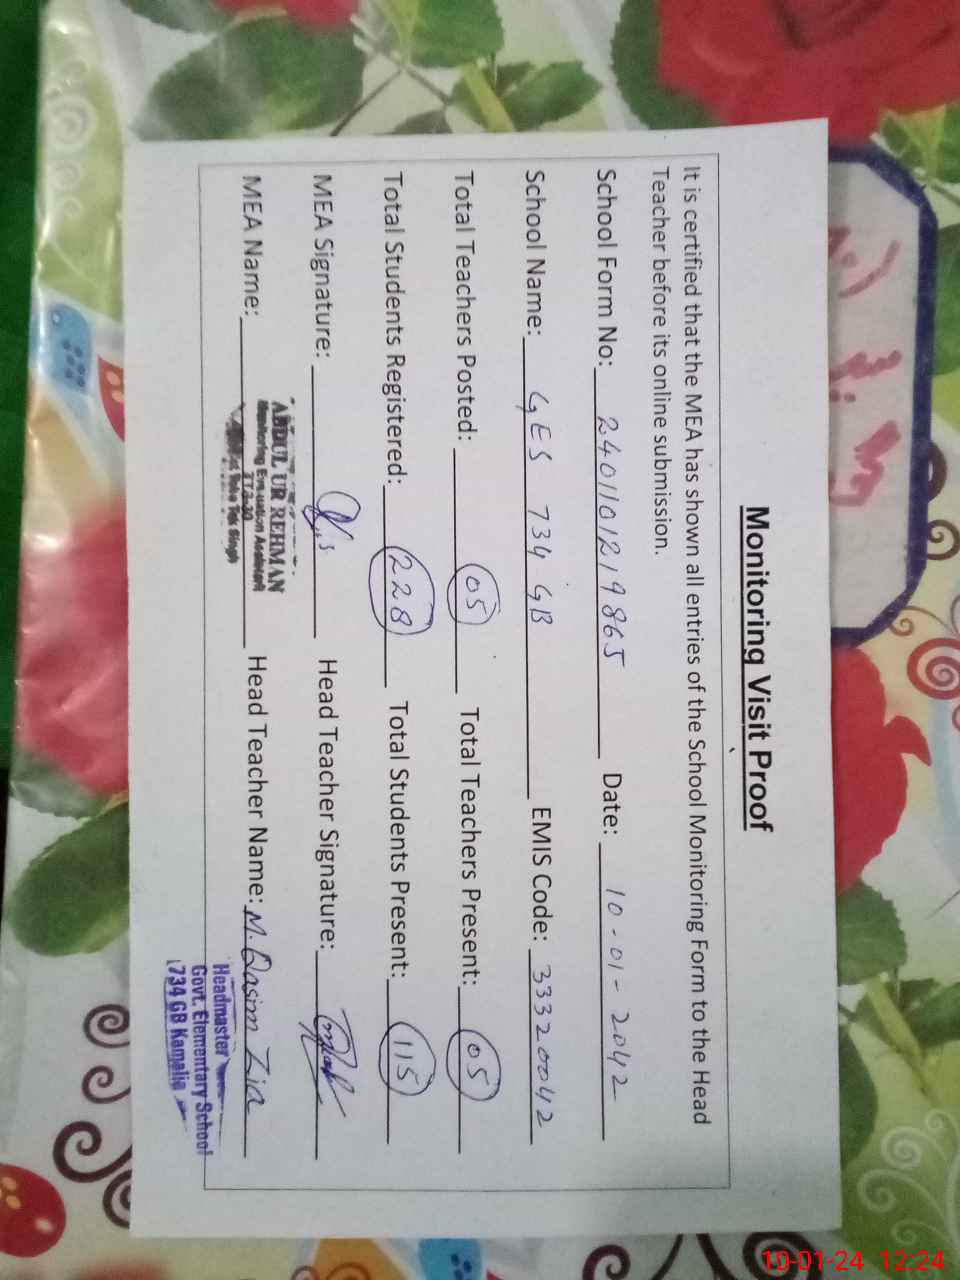 Monitoring Visit Proof
It is certified that the MEA has shown all entries of the School Monitoring Form to the Head
Teacher before its online submission.
School Form No: 2401101219865 Date: 10-01-2042
School Name: GES 734 GB EMIS Code: 33320042
Total Teachers Posted: 05 Total Teachers Present: 05
Total Students Registered: 228 Total Students Present: 115
MEA Signature: Head Teacher Signature:
MEA Name: Head Teacher Name: M. Qasim Zia
ABDUL UR REHMAN
Monitoring Evaluation Assistant
Toba Tek Singh
Headmaster
Govt. Elementary School
734 GB Kamalia
10-01-24 12:24